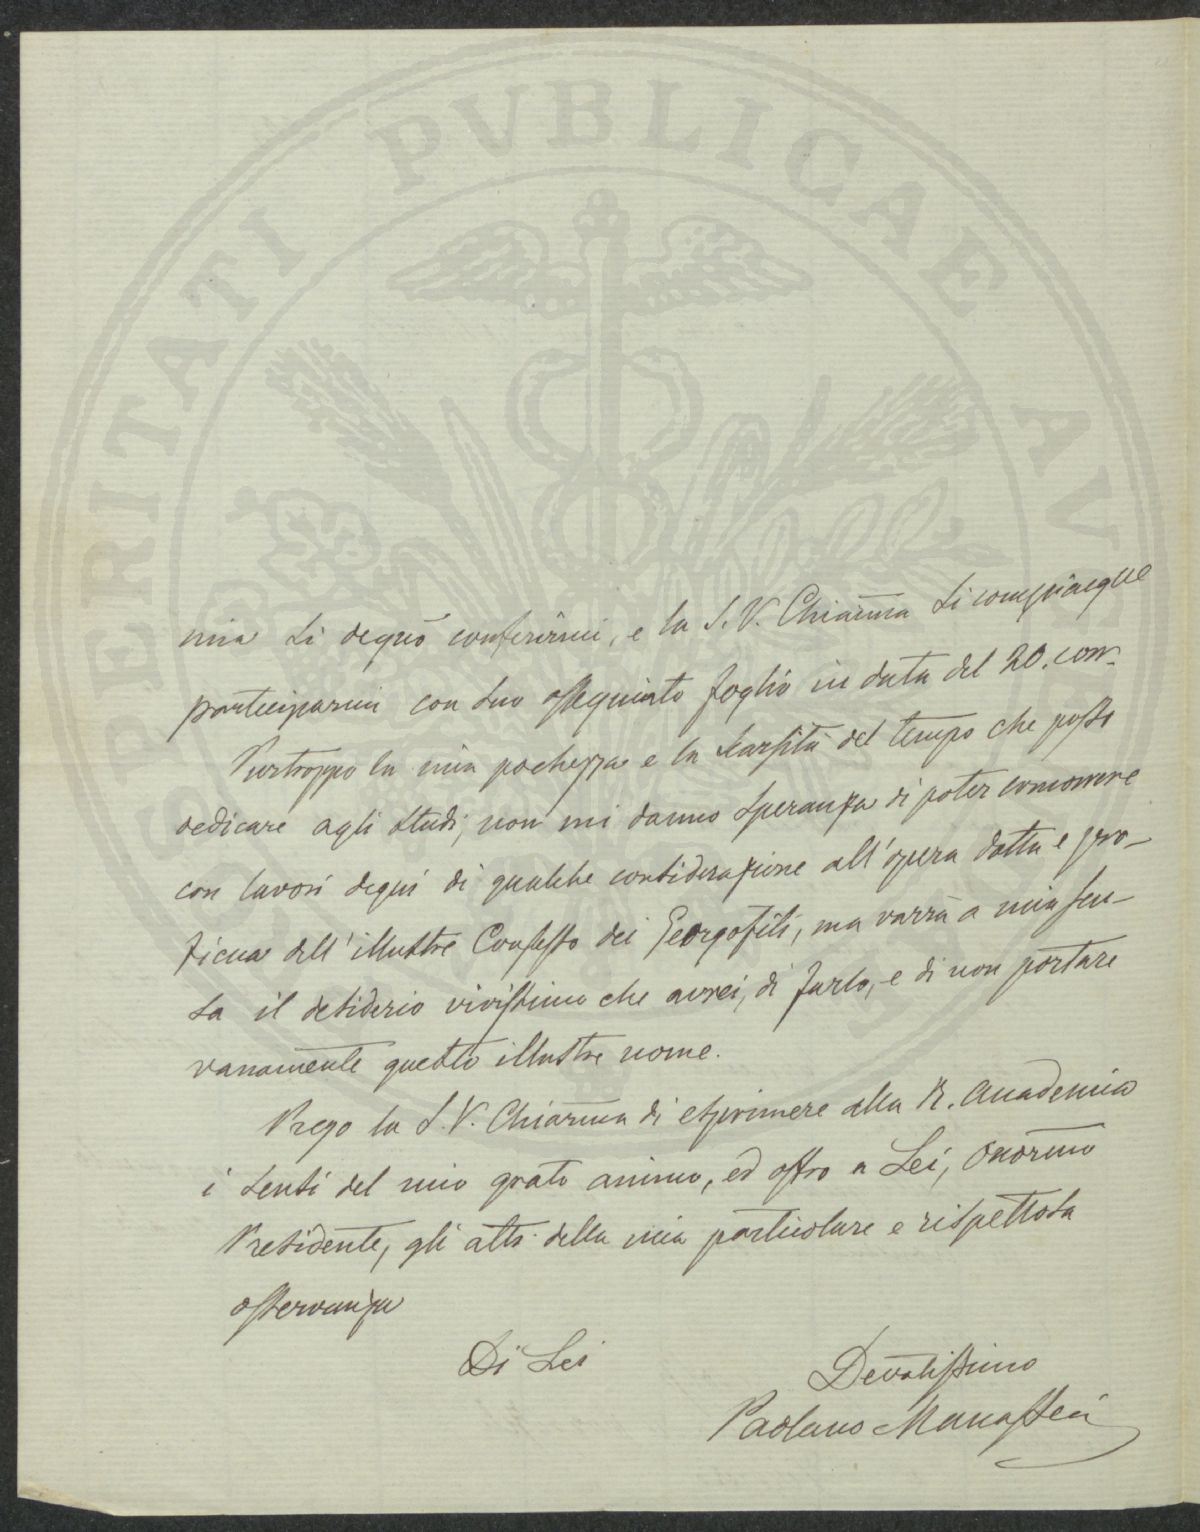 PROSPERITATI PUBLICAE AU
mia si degnò conferirmi, e la S. V. Chiarma si compiacque
parteciparmi con suo ossequiato foglio in data del 20. corr.
Purtroppo la mia pochezza e la scarsità del tempo che posso
dedicare agli studi, non mi danno speranza di poter concorrere
con lavori degni di qualche considerazione all'opera dotta e pro-
ficua dell'illustre Consesso dei Georgofili, ma varrà a mia scu-
sa il desiderio vivissimo che avrei, di farlo, e di non portare
vanamente questo illustre nome.
Prego la S. V. Chiarma di esprimere alla R. Accademia
i sensi del mio grato animo, ed offro a Lei, Onormo
Presidente, gli atti della mia particolare e rispettosa
osservanza
Di Lei
Devotissimo
Paolano Manassei